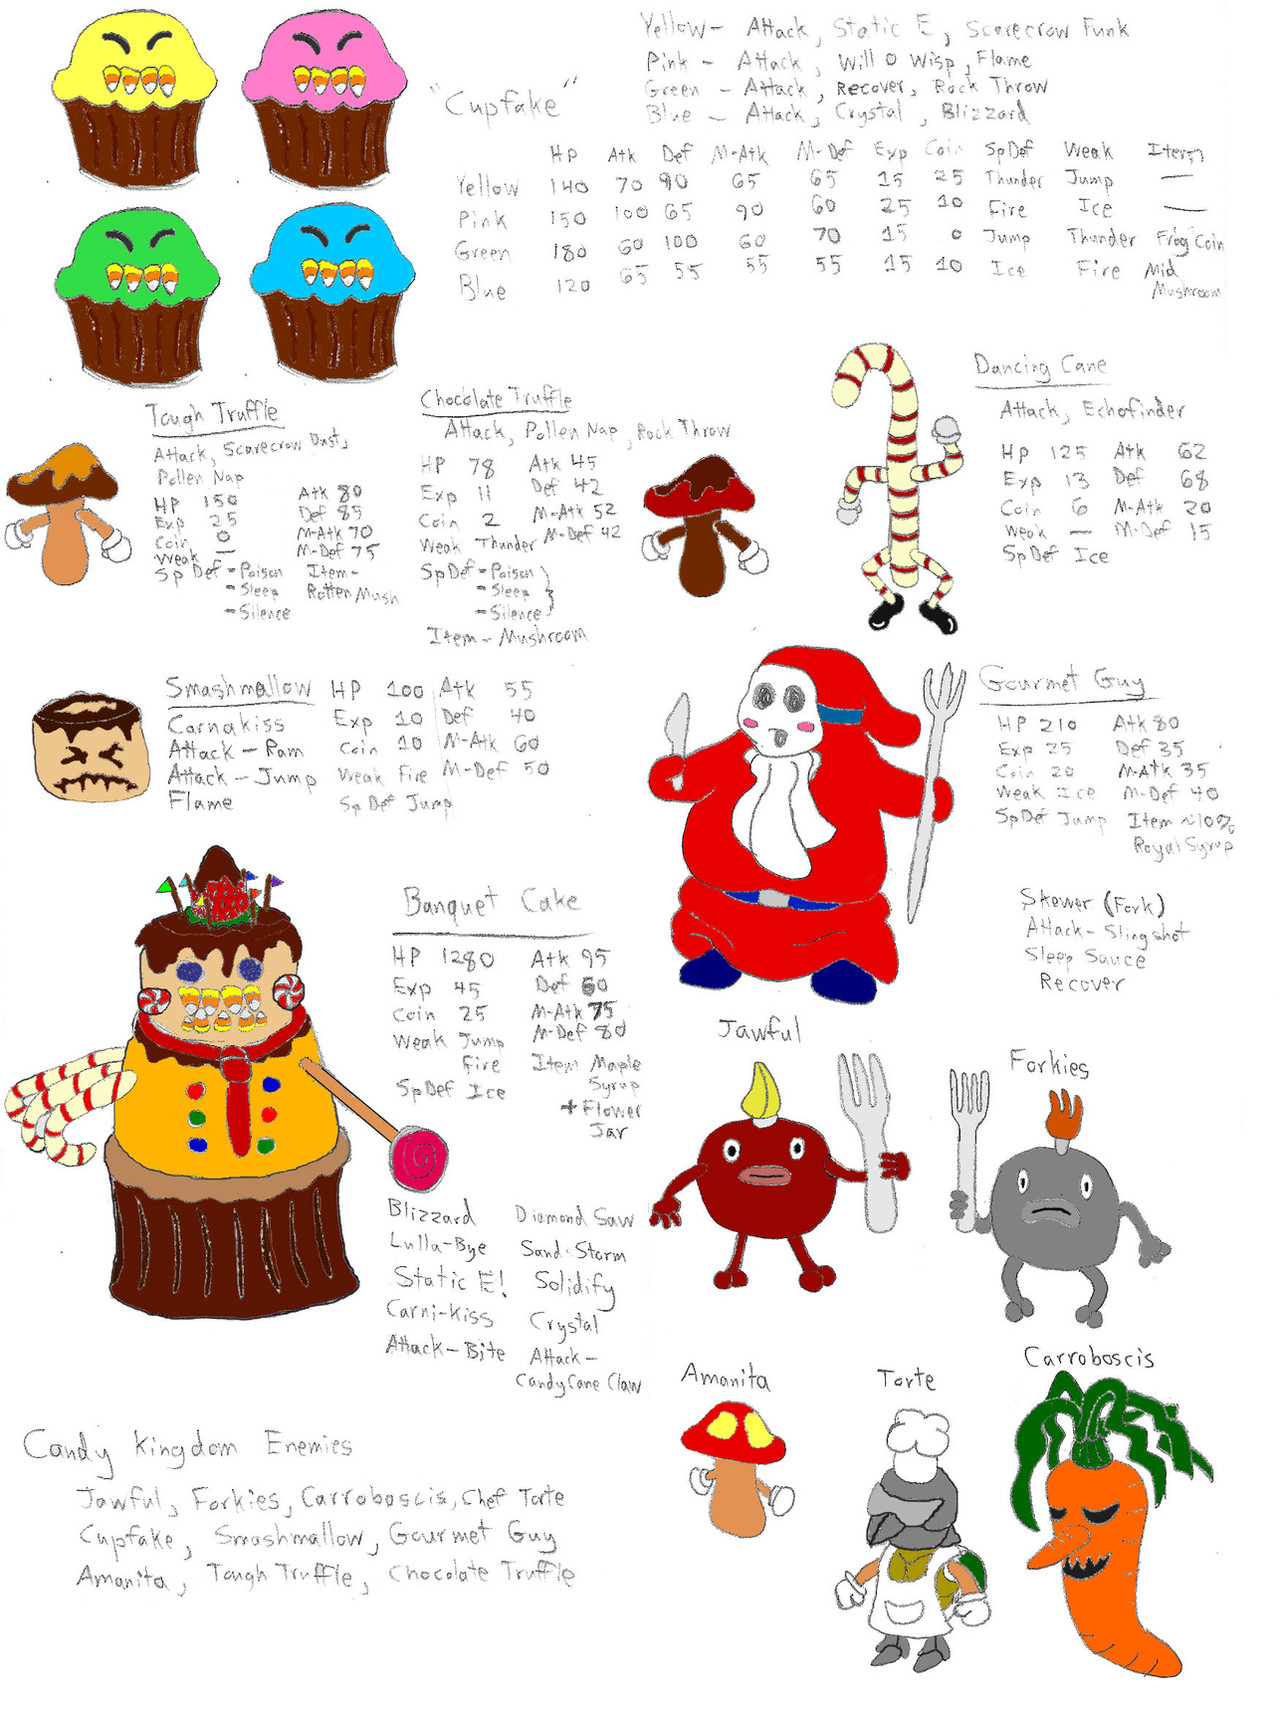 Yellow - Attack, Static E, Scarecrow Funk
Pink - Attack, Will O Wisp, Flame
Green - Attack, Recover, Rock Throw
Blue - Attack, Crystal, Blizzard
"Cupfake"
HP Atk Def M-Atk M-Def Exp Coin SpDef Weak Item
Yellow 140 70 90 65 65 15 25 Thunder Jump —
Pink 150 100 65 90 60 25 10 Fire Ice —
Green 180 60 100 60 70 15 0 Jump Thunder Frog Coin
Blue 120 65 55 55 55 15 10 Ice Fire Mid
Mushroom
Tough Truffle
Attack, Scarecrow Dust,
Pollen Nap
HP 150 Atk 80
Exp 25 Def 85
Coin 0 M-Atk 70
Weak — M-Def 75
Sp Def - Poison Item -
- Sleep Rotten Mush
- Silence
Chocolate Truffle
Attack, Pollen Nap, Rock Throw
HP 78 Atk 45
Exp 11 Def 42
Coin 2 M-Atk 52
Weak Thunder M-Def 42
SpDef - Poison
- Sleep
- Silence
Item - Mushroom
Dancing Cane
Attack, Echofinder
HP 125 Atk 62
Exp 13 Def 68
Coin 6 M-Atk 20
Weak — M-Def 15
Sp Def Ice
Smashmallow HP 100 Atk 55
Carnakiss Exp 10 Def 40
Attack - Ram Coin 10 M-Atk 60
Attack - Jump Weak Fire M-Def 50
Flame Sp Def Jump
Gourmet Guy
HP 210 Atk 80
Exp 25 Def 35
Coin 20 M-Atk 35
Weak Ice M-Def 40
SpDef Jump Item ~10%
Royal Syrup
Skewer (Fork)
Attack - Slingshot
Sleep Sauce
Recover
Banquet Cake
HP 1280 Atk 95
Exp 45 Def 60
Coin 25 M-Atk 75
Weak Jump M-Def 80
Fire Item Maple
Sp Def Ice Syrup
+ Flower
Jar
Blizzard Diamond Saw
Lulla-Bye Sand Storm
Static E! Solidify
Carni-Kiss Crystal
Attack - Bite Attack -
Candy Cane Claw
Jawful
Forkies
Amanita
Torte
Carroboscis
Candy Kingdom Enemies
Jawful, Forkies, Carroboscis, Chef Torte
Cupfake, Smashmallow, Gourmet Guy
Amanita, Tough Truffle, Chocolate Truffle